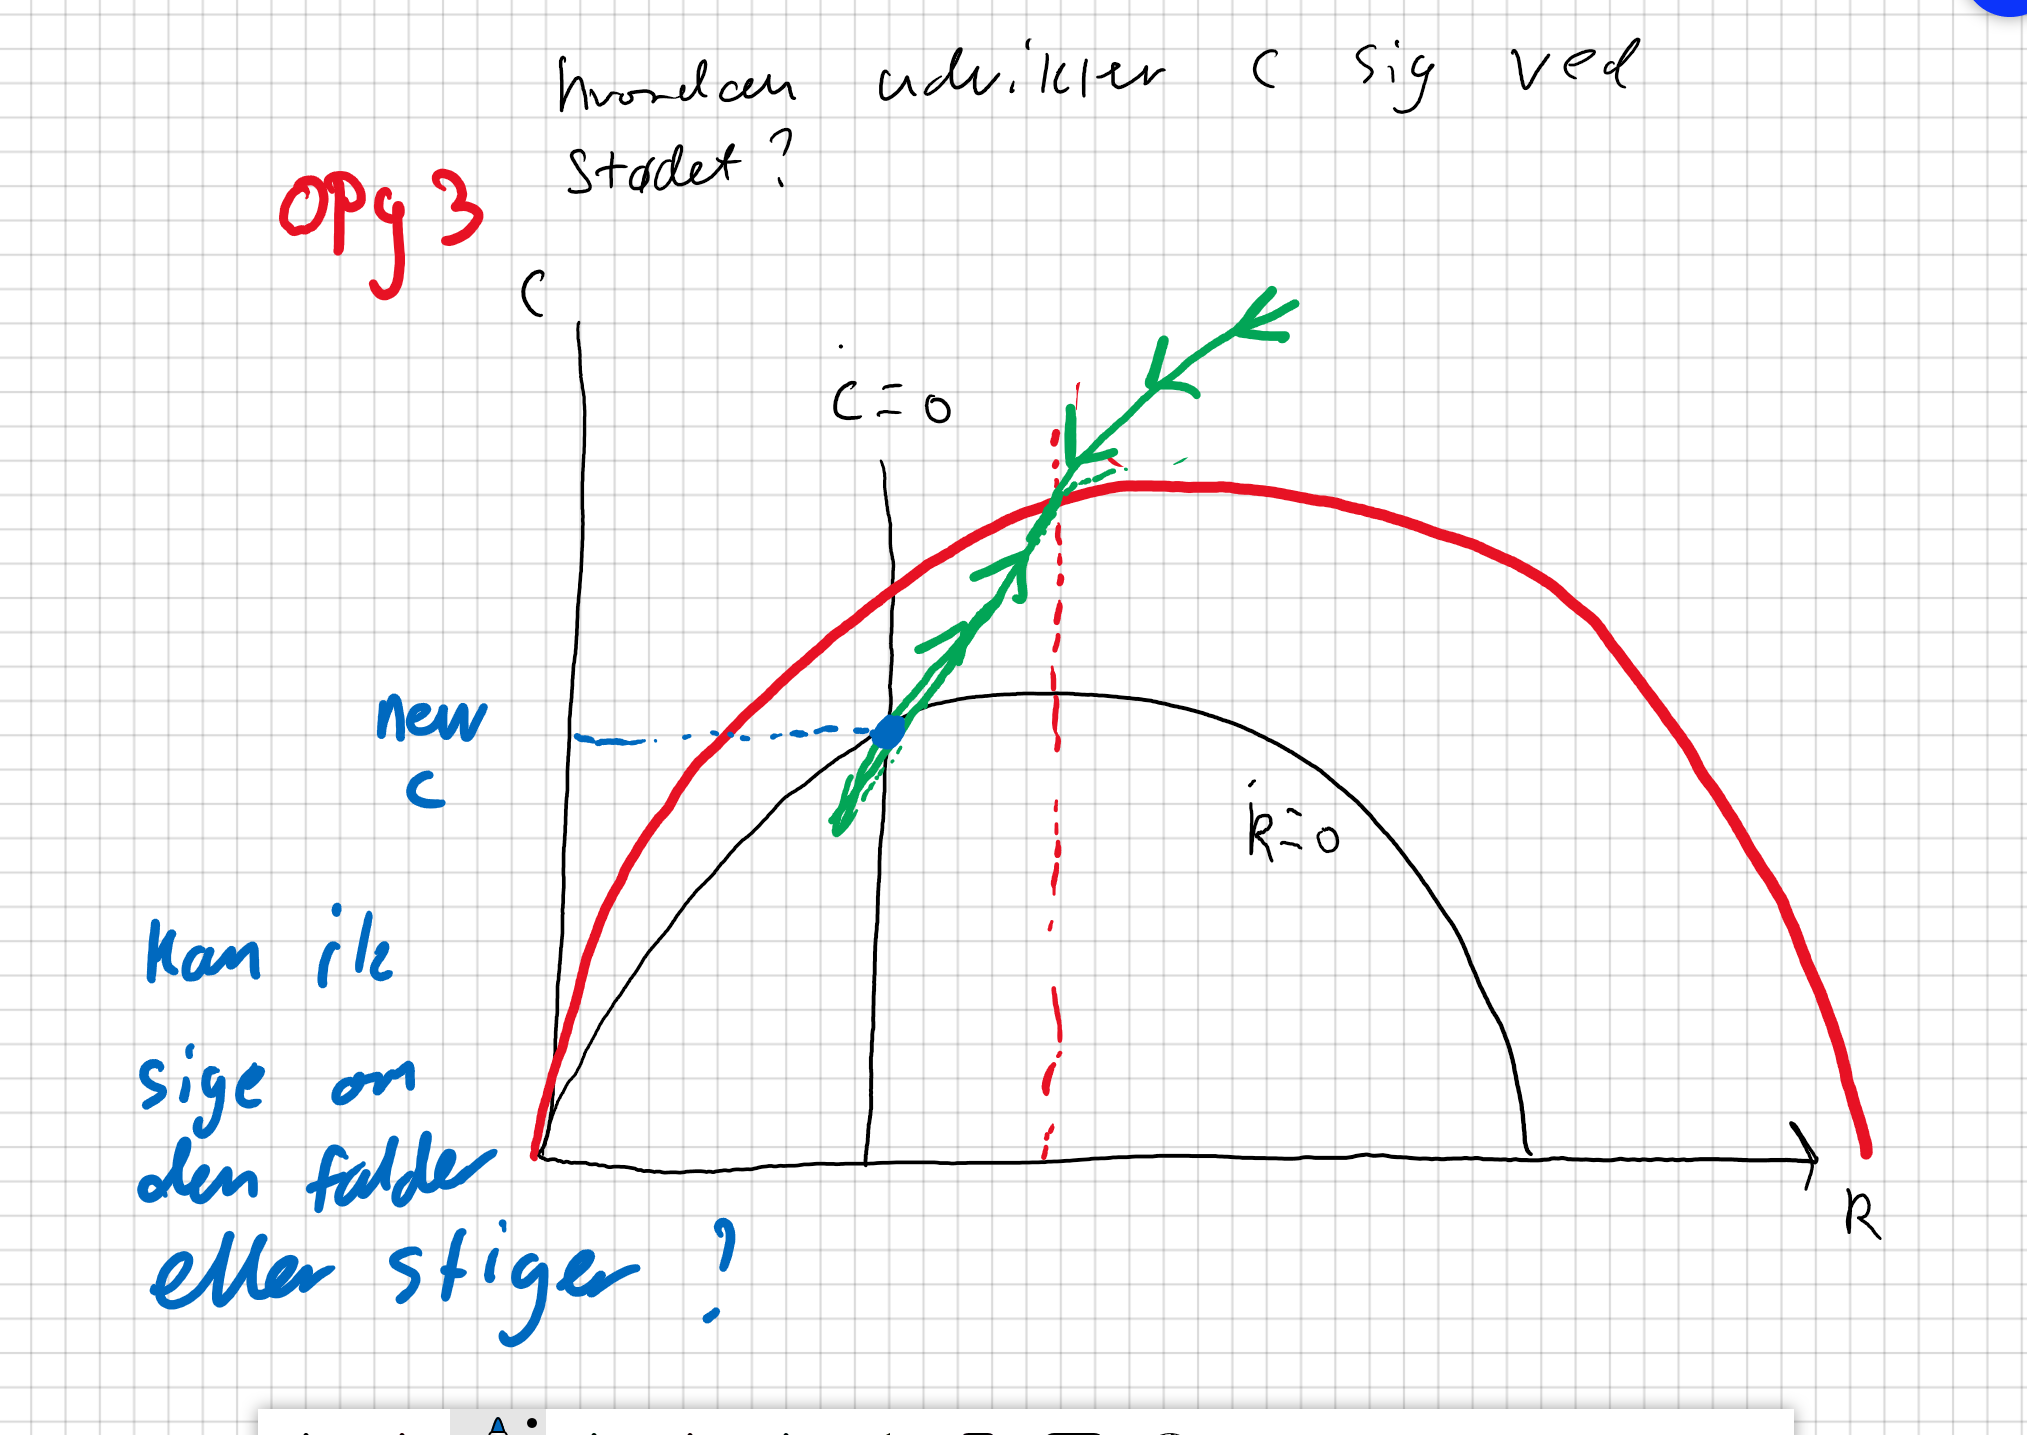 hvordan udvikler C sig ved
stødet?
opg 3
C
ċ=0
new
C
k̇=0
kan ik
sige om
den falder
eller stiger?
k